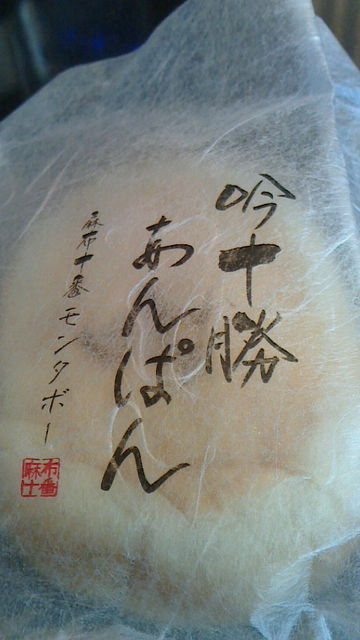 吟十勝
あんぱん
麻布十番モンタボー
麻布十番